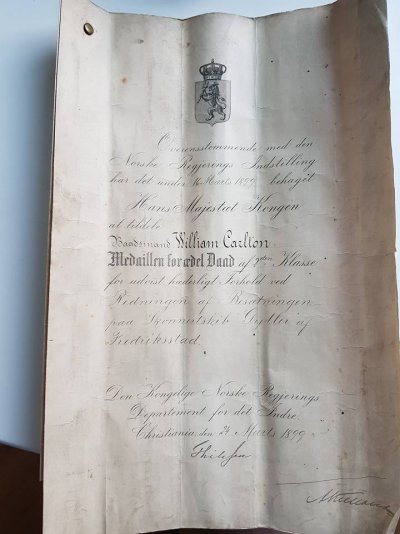 Overensstemmende med den
Norske Regjerings Indstilling
har det under 16 Marts 1899 behaget
Hans Majestæt Kongen
at tildele
Baadsmand William Carlton
Medaillen for ædel Daad af 2den Klasse
for udvist hæderligt Forhold ved
Redningen af Besætningen
paa Skonnertskib Gytler af
Fredriksstad.
Den Kongelige Norske Regjerings
Departement for det Indre,
Christiania, den 21 Marts 1899